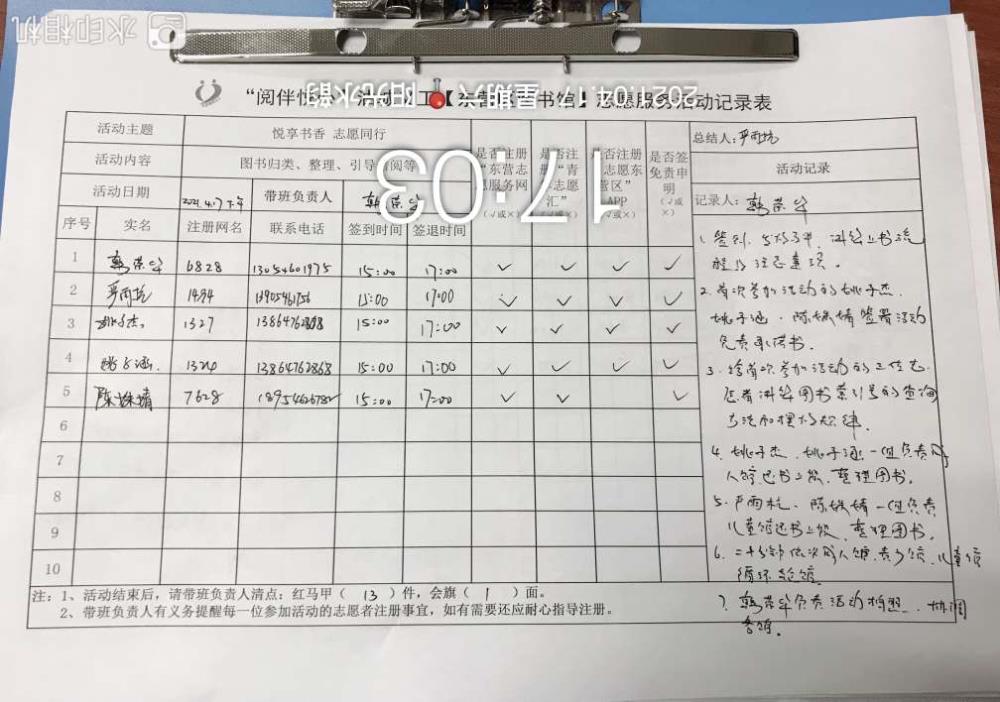 水印相机
2021.04.17 星期六 阳光水韵
17:03
“阅伴悦 活动 工【东营区图书馆】志愿服务活动记录表
活动主题 悦享书香 志愿同行
活动内容 图书归类、整理、引导借阅等
活动日期 2021.4.17下午 带班负责人 韩荣华
是否注册“东营志愿服务网”（√或×）
是否注册“青 志愿汇”（√或×）
是否注册“志愿东营区”APP（√或×）
是否签免责申明（√或×）
总结人：严雨杭
活动记录
记录人：韩荣华
序号 实名 注册网名 联系电话 签到时间 签退时间
1 韩荣华 6828 13054601975 15:00 17:00 √ √ √ √
2 严雨杭 1494 13905461756 15:00 17:00 √ √ √ √
3 姚子杰 1327 13864762868 15:00 17:00 √ √ √ √
4 姚子涵 1324 13864762868 15:00 17:00 √ √ √ √
5 陈姝婧 7628 15:00 17:00 √ √ √
6
7
8
9
10
1. 签到、 讲解上书流
程及注意事项。
2. 首次参加活动的姚子杰、
姚子涵、陈姝婧签署活动
免责承诺书。
3. 给首次参加活动的三位志
愿者讲解图书索引号的查询
方法和摆放规律。
4. 姚子杰、姚子涵一组负责成
人馆还书上架、整理图书。
5. 严雨杭、陈姝婧一组负责
儿童馆还书上架、整理图书。
6. 二十分钟依次成人馆、青少馆、儿童馆
循环轮馆
7. 韩荣华负责活动拍照、协调
各馆。
注：1、活动结束后，请带班负责人清点：红马甲（ 13 ）件，会旗（ 1 ）面。
2、带班负责人有义务提醒每一位参加活动的志愿者注册事宜，如有需要还应耐心指导注册。